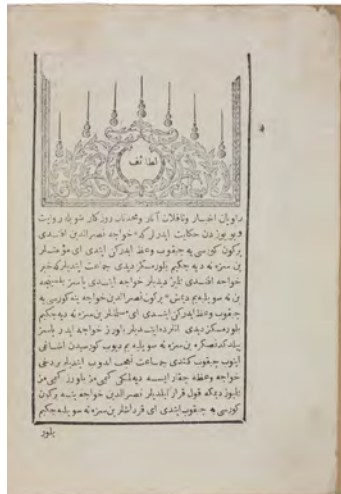 لطائف
راويان اخبار وناقلان آثار ومحدثان روزكار شويله روايت
ويو يوزدن حكايت ايدرلركه خواجه نصرالدين افندى
بركون كورسى يه چيقوب وعظ ايدركن ايتدى اى مؤمنلر
بن سزه نه ديه جكم بلورمسكز ديدى جماعت ايتديلركه خير
خواجه افندى بلمز ديديلر خواجه ايتدى يا سز بلمينجه
بن نه سويليه يم ديمش بركون نصرالدين خواجه ينه كورسى يه
چيقوب وعظ ايدركن ايتدى اى مسلمانلر بن سزه نه ديه جكم
بلورمسكز ديدى انلرده ايتديلر بلورز خواجه ايدر يا سز
بيلدكدنصكره بن سزه نه سويليه يم ديوب كورسيدن اشاغى
اينوب چيقوب كتدى جماعت تعجب ايدوب ايتديلر بردخى
خواجه وعظه چقار ايسه ديه لمكه كيمى مز بلورز كيمى مز
بلمز ديمكه قول قرار ايلديلر نصرالدين خواجه ينه بركون
كورسى يه چيقوب ايتدى اى قرداشلر بن سزه نه سويليه جكم
بلور